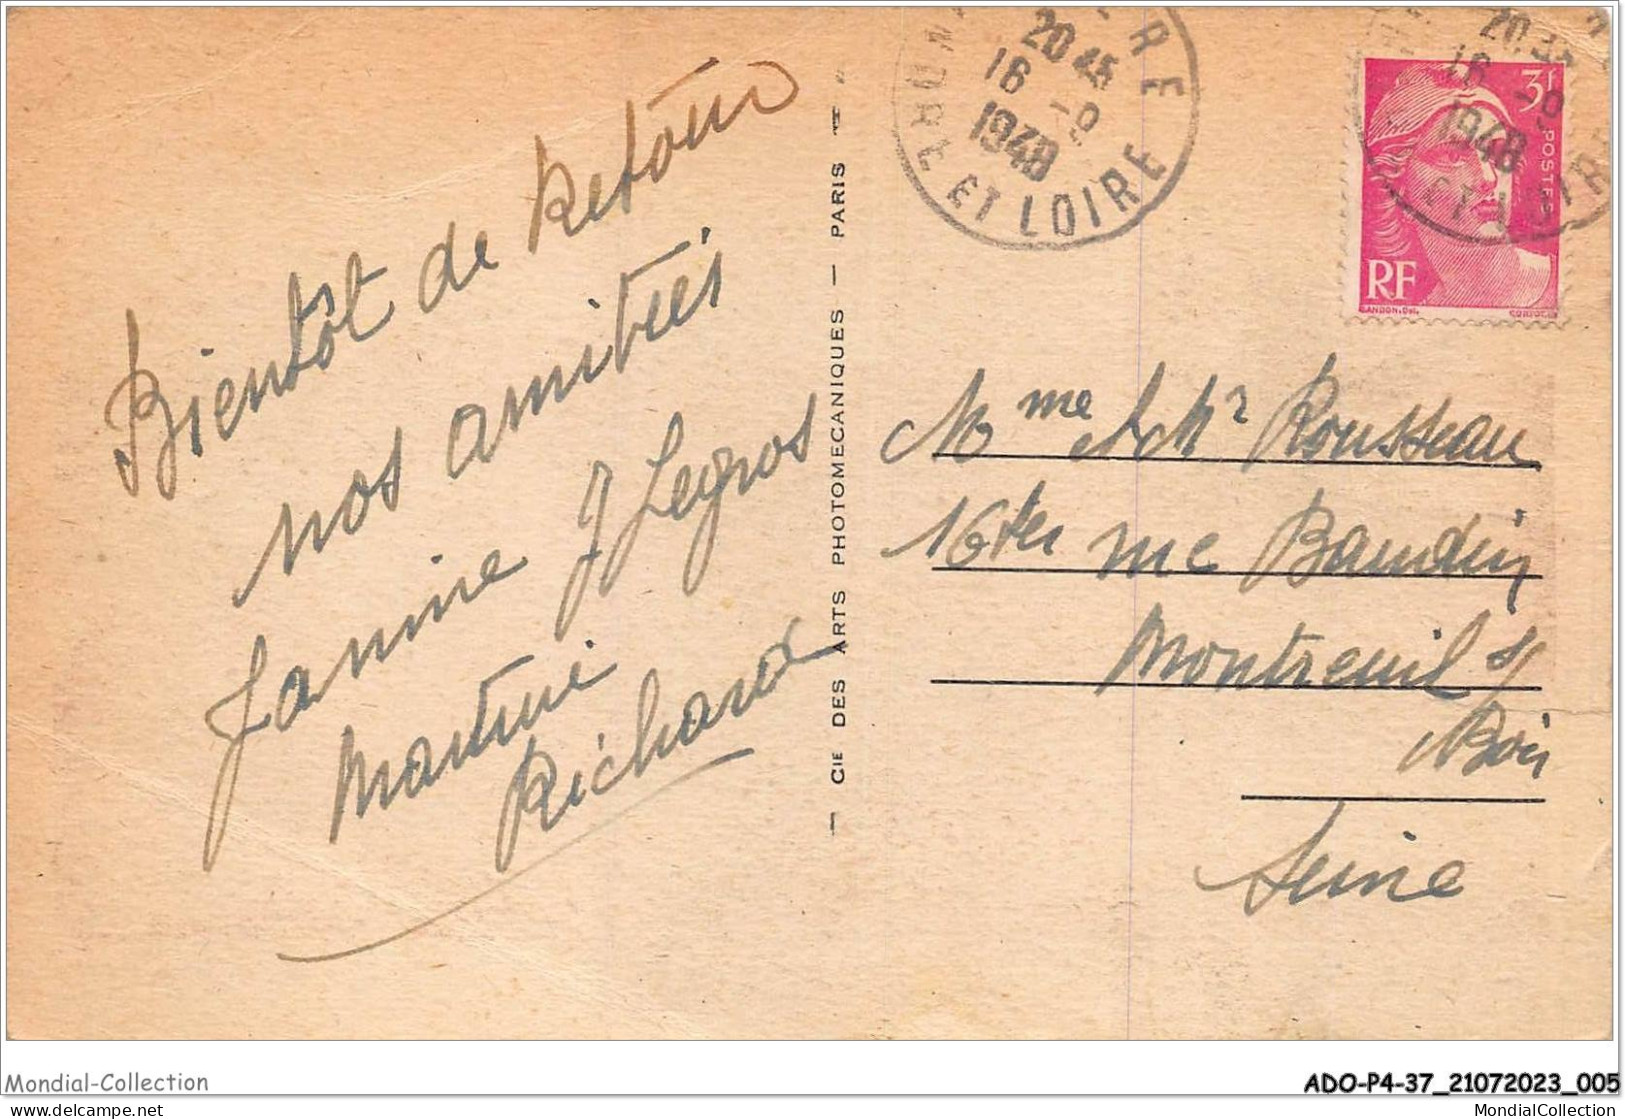 Bientôt de Retour
nos amitiés
Janine J Legros
Martine
Richard
— CIE DES ARTS PHOTOMECANIQUES — PARIS —
20 45
16 -9
1948
ET LOIRE
20 45
16 -9
1948
ET LOIRE
3f
POSTES
RF
GANDON. Del.
CORTOT. Sc
Mme & Mr Rousseau
16ter rue Baudin
Montreuil s/
Bois
Seine
Mondial-Collection
ADO-P4-37_21072023_005
delcampe.net
MondialCollection